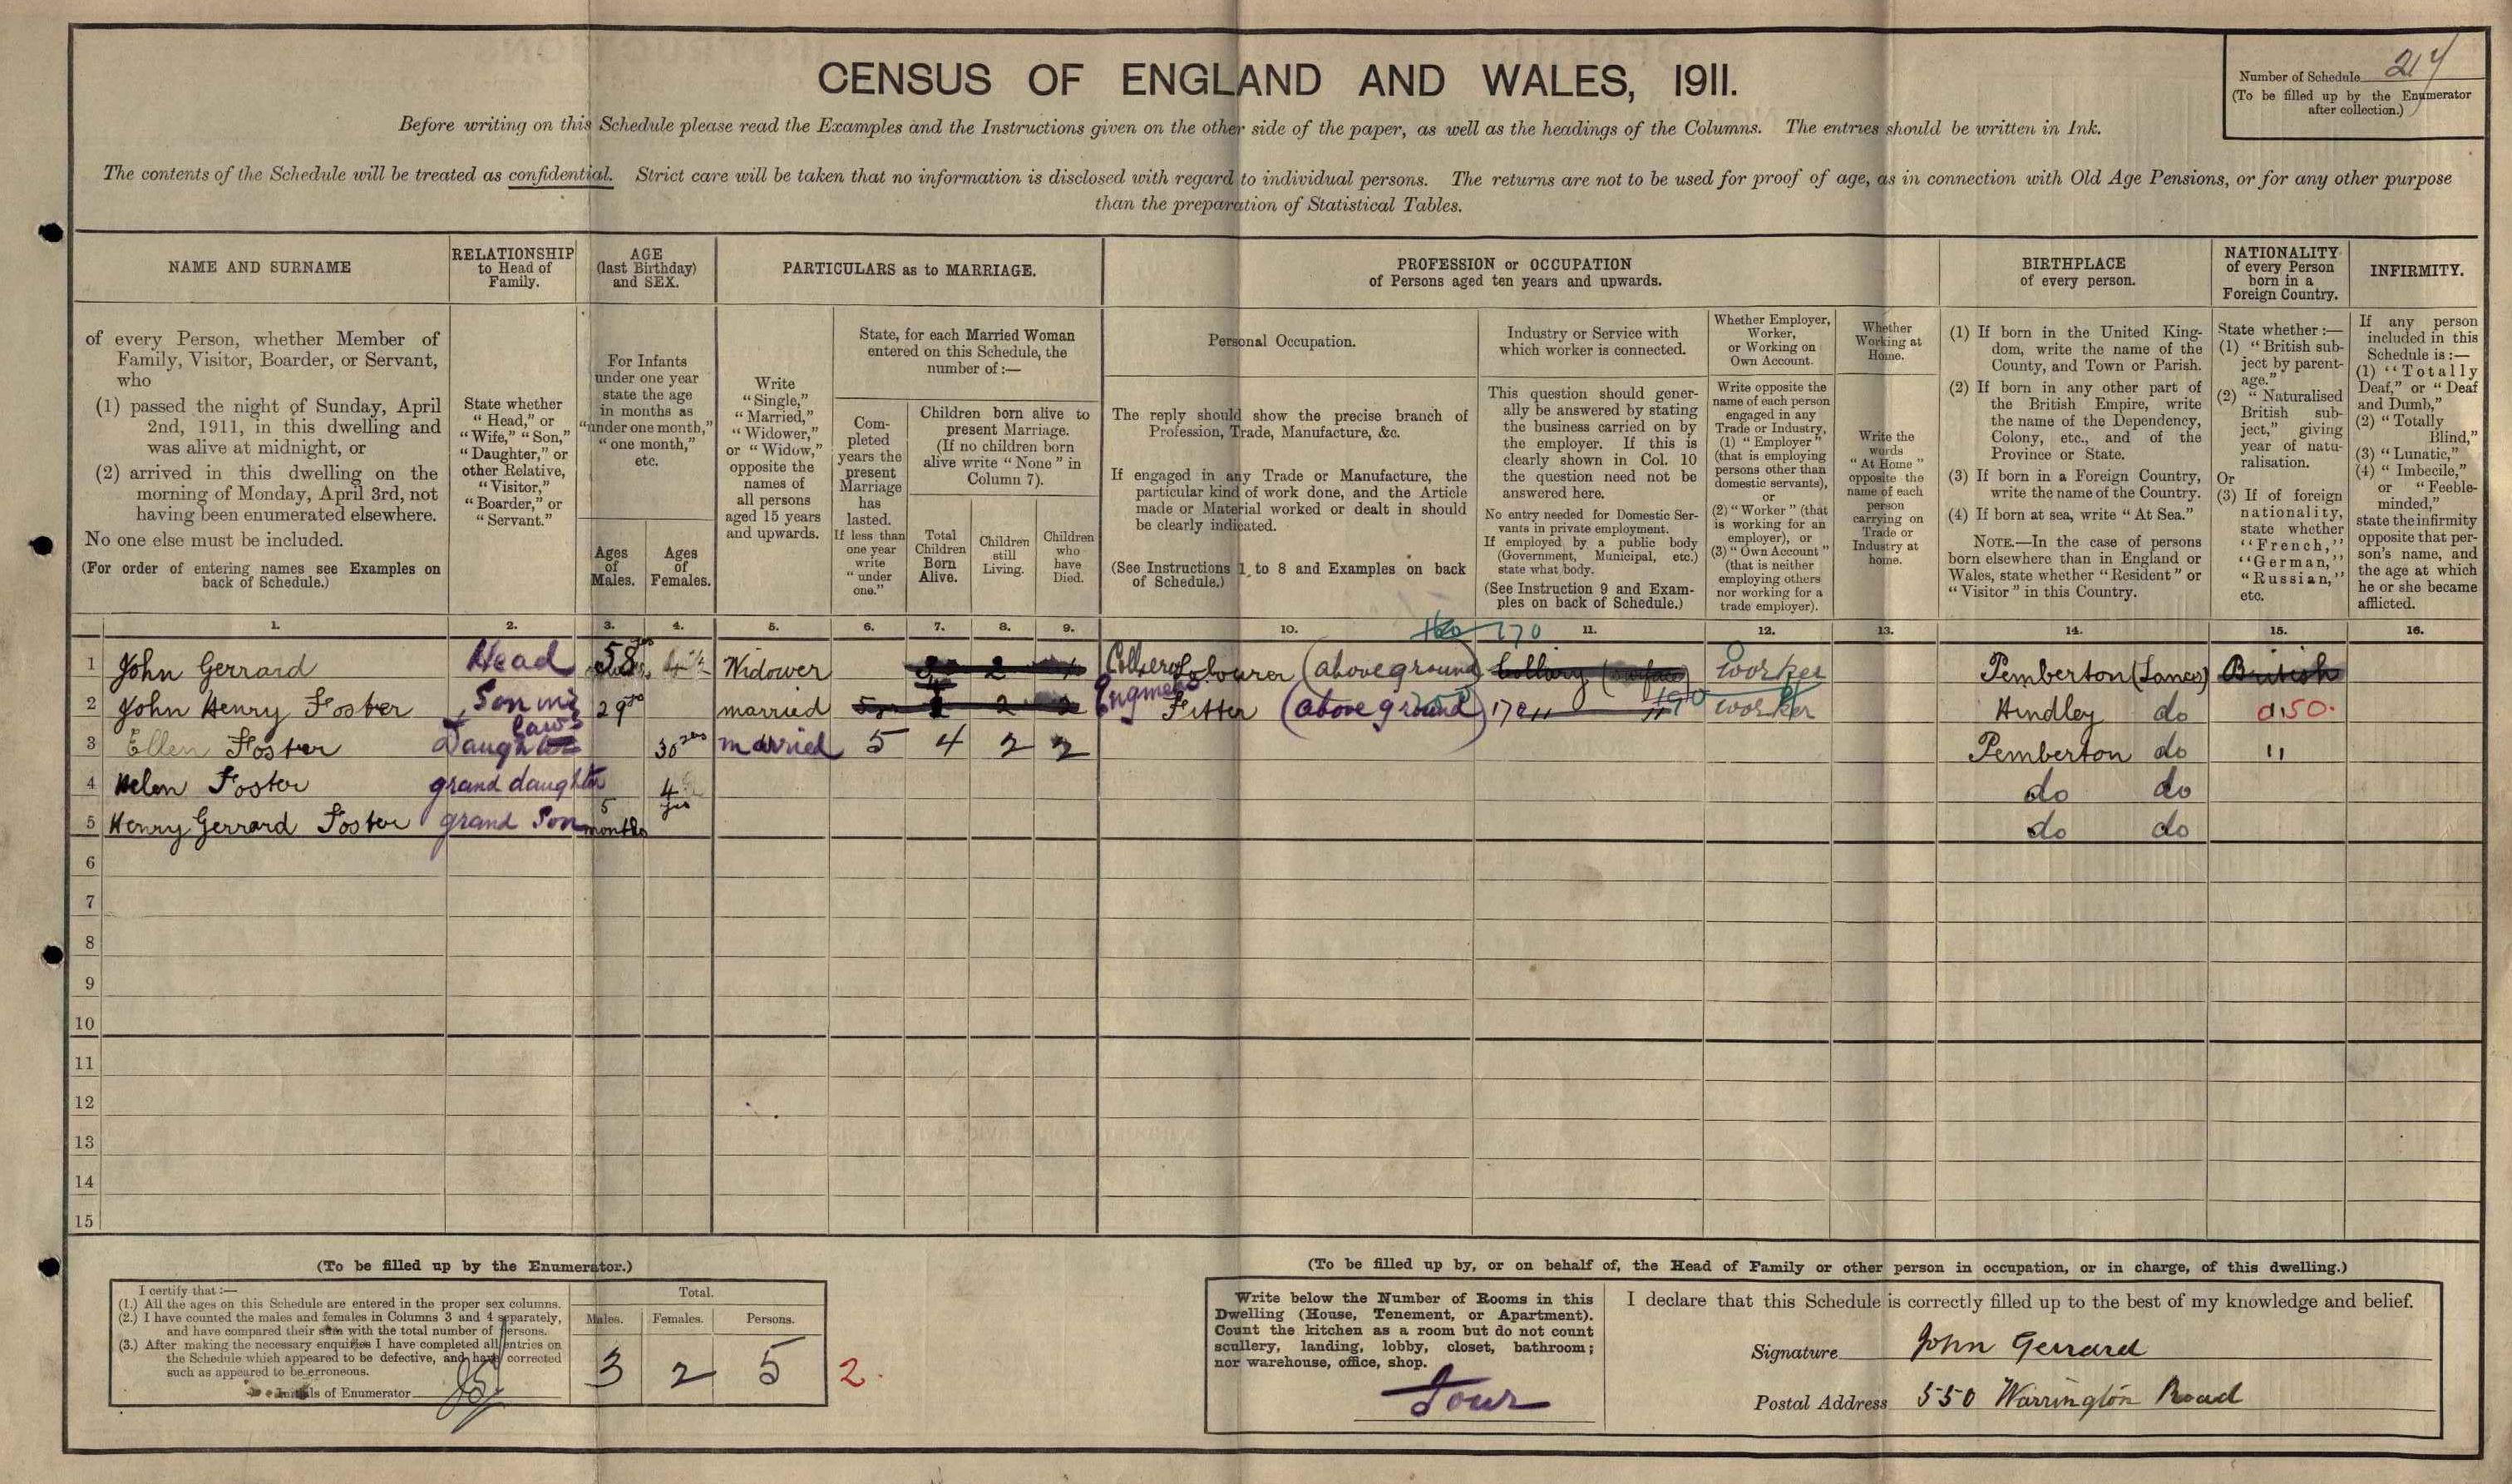 CENSUS OF ENGLAND AND WALES, 1911.
Number of Schedule 214
(To be filled up by the Enumerator
after collection.)
Before writing on this Schedule please read the Examples and the Instructions given on the other side of the paper, as well as the headings of the Columns. The entries should be written in Ink.
The contents of the Schedule will be treated as confidential. Strict care will be taken that no information is disclosed with regard to individual persons. The returns are not to be used for proof of age, as in connection with Old Age Pensions, or for any other purpose
than the preparation of Statistical Tables.
NAME AND SURNAME
of every Person, whether Member of
Family, Visitor, Boarder, or Servant,
who
(1) passed the night of Sunday, April
2nd, 1911, in this dwelling and
was alive at midnight, or
(2) arrived in this dwelling on the
morning of Monday, April 3rd, not
having been enumerated elsewhere.
No one else must be included.
(For order of entering names see Examples on
back of Schedule.)
RELATIONSHIP
to Head of
Family.
State whether
"Head," or
"Wife," "Son,"
"Daughter," or
other Relative,
"Visitor,"
"Boarder," or
"Servant."
AGE
(last Birthday)
and SEX.
For Infants
under one year
state the age
in months as
"under one month,"
"one month,"
etc.
Ages
of
Males.
Ages
of
Females.
PARTICULARS as to MARRIAGE.
Write
"Single,"
"Married,"
"Widower,"
or "Widow,"
opposite the
names of
all persons
aged 15 years
and upwards.
State, for each Married Woman
entered on this Schedule, the
number of :—
Com-
pleted
years the
present
Marriage
has
lasted.
If less than
one year
write
"under
one."
Children born alive to
present Marriage.
(If no children born
alive write "None" in
Column 7).
Total
Children
Born
Alive.
Children
still
Living.
Children
who
have
Died.
PROFESSION or OCCUPATION
of Persons aged ten years and upwards.
Personal Occupation.
The reply should show the precise branch of
Profession, Trade, Manufacture, &c.
If engaged in any Trade or Manufacture, the
particular kind of work done, and the Article
made or Material worked or dealt in should
be clearly indicated.
(See Instructions 1 to 8 and Examples on back
of Schedule.)
Industry or Service with
which worker is connected.
This question should gener-
ally be answered by stating
the business carried on by
the employer. If this is
clearly shown in Col. 10
the question need not be
answered here.
No entry needed for Domestic Ser-
vants in private employment.
If employed by a public body
(Government, Municipal, etc.)
state what body.
(See Instruction 9 and Exam-
ples on back of Schedule.)
Whether Employer,
Worker,
or Working on
Own Account.
Write opposite the
name of each person
engaged in any
Trade or Industry,
(1) "Employer"
(that is employing
persons other than
domestic servants),
or
(2) "Worker" (that
is working for an
employer), or
(3) "Own Account"
(that is neither
employing others
nor working for a
trade employer).
Whether
Working at
Home.
Write the
words
"At Home"
opposite the
name of each
person
carrying on
Trade or
Industry at
home.
BIRTHPLACE
of every person.
(1) If born in the United King-
dom, write the name of the
County, and Town or Parish.
(2) If born in any other part of
the British Empire, write
the name of the Dependency,
Colony, etc., and of the
Province or State.
(3) If born in a Foreign Country,
write the name of the Country.
(4) If born at sea, write "At Sea."
NOTE.—In the case of persons
born elsewhere than in England or
Wales, state whether "Resident" or
"Visitor" in this Country.
NATIONALITY
of every Person
born in a
Foreign Country.
State whether :—
(1) "British sub-
ject by parent-
age."
(2) "Naturalised
British sub-
ject," giving
year of natu-
ralisation.
Or
(3) If of foreign
nationality,
state whether
"French,"
"German,"
"Russian,"
etc.
INFIRMITY.
If any person
included in this
Schedule is :—
(1) "Totally
Deaf," or "Deaf
and Dumb,"
(2) "Totally
Blind,"
(3) "Lunatic,"
(4) "Imbecile,"
or "Feeble-
minded,"
state the infirmity
opposite that per-
son's name, and
the age at which
he or she became
afflicted.
1. 2. 3. 4. 5. 6. 7. 8. 9. 10. 11. 12. 13. 14. 15. 16.
170
1 John Gerrard Head 58 Widower Labourer (above ground) Colliery worker Pemberton (Lancs) British
2 John Henry Foster Son in law 29 married Fitter (above ground) worker Hindley do 0.50.
3 Ellen Foster Daughter 30 married 5 4 2 2 Pemberton do "
4 Helen Foster grand daughter 4 yrs do do
5 Henry Gerrard Foster grand Son 5 months do do
6
7
8
9
10
11
12
13
14
15
(To be filled up by the Enumerator.)
I certify that :—
(1.) All the ages on this Schedule are entered in the proper sex columns.
(2.) I have counted the males and females in Columns 3 and 4 separately,
and have compared their sum with the total number of persons.
(3.) After making the necessary enquiries I have completed all entries on
the Schedule which appeared to be defective, and have corrected
such as appeared to be erroneous.
Initials of Enumerator
Total.
Males. Females. Persons.
3 2 5 2.
(To be filled up by, or on behalf of, the Head of Family or other person in occupation, or in charge, of this dwelling.)
Write below the Number of Rooms in this
Dwelling (House, Tenement, or Apartment).
Count the kitchen as a room but do not count
scullery, landing, lobby, closet, bathroom;
nor warehouse, office, shop.
Four
I declare that this Schedule is correctly filled up to the best of my knowledge and belief.
Signature John Gerrard
Postal Address 550 Warrington Road